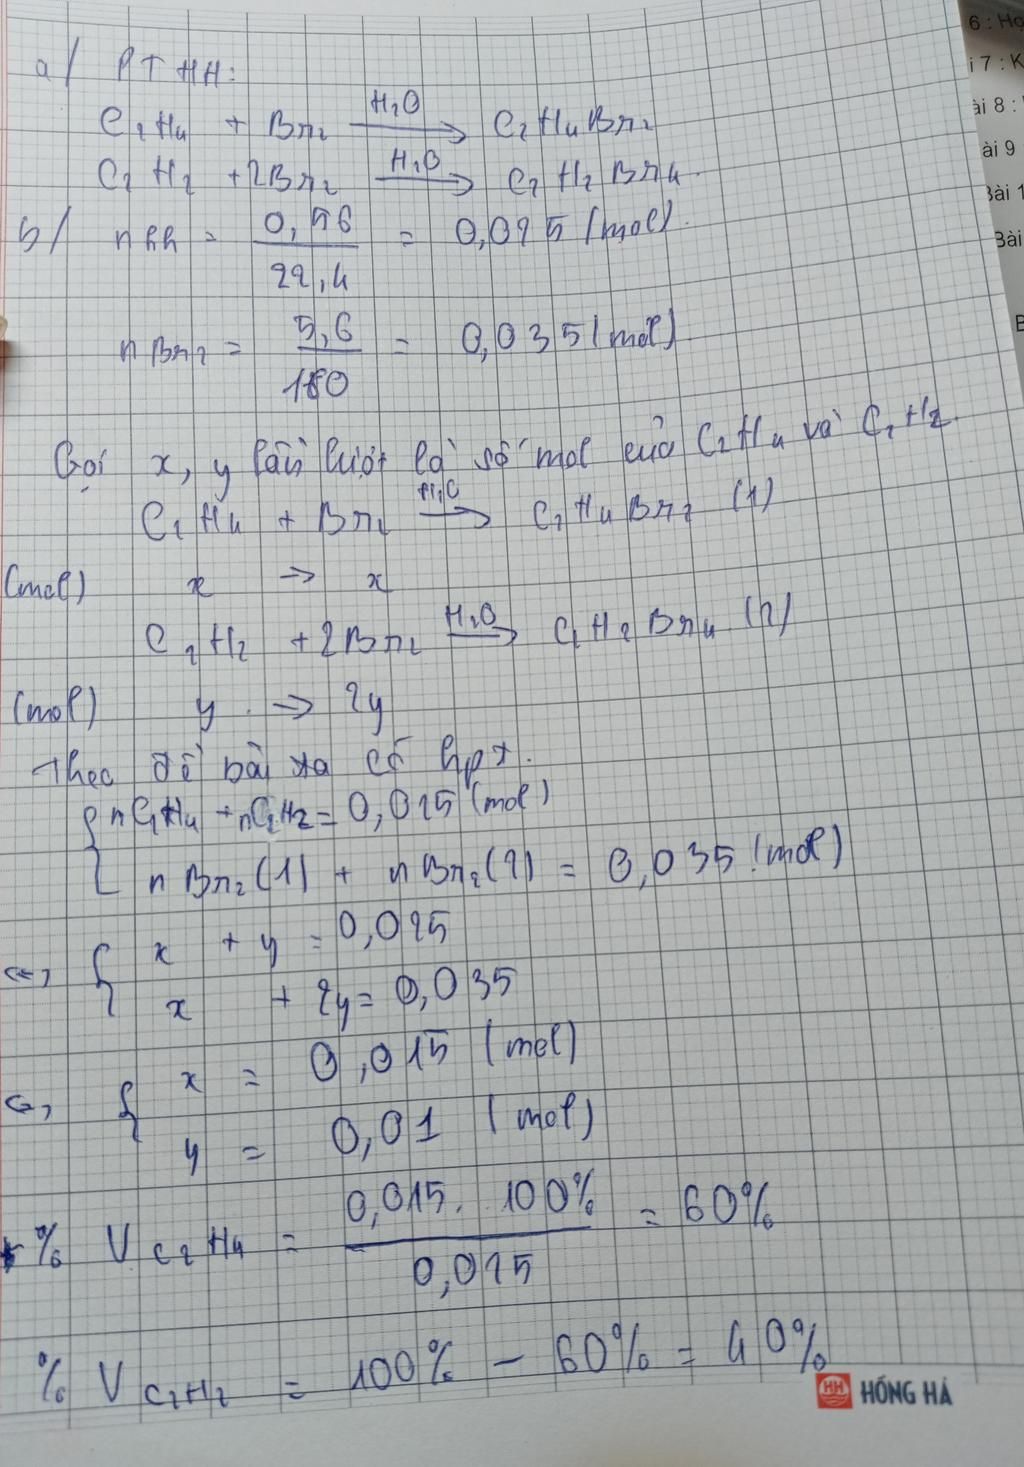 a/ PTHH:
C₂H₄ + Br₂ —H₂O→ C₂H₄Br₂
C₂H₂ + 2Br₂ —H₂O→ C₂H₂Br₄
b/ nhh = 0,56 / 22,4 = 0,025 (mol).
nBr₂ = 5,6 / 160 = 0,035 (mol)
Gọi x, y lần lượt là số mol của C₂H₄ và C₂H₂.
C₂H₄ + Br₂ —H₂O→ C₂H₄Br₂ (1)
(mol) x → x
C₂H₂ + 2Br₂ —H₂O→ C₂H₂Br₄ (2)
(mol) y → 2y
Theo đề bài ta có hpt.
{ nC₂H₄ + nC₂H₂ = 0,025 (mol)
nBr₂(1) + nBr₂(2) = 0,035 (mol)
<=> { x + y = 0,025
x + 2y = 0,035
<=> { x = 0,015 (mol)
y = 0,01 (mol)
% V C₂H₄ = 0,015 . 100% / 0,025 = 60%
% V C₂H₂ = 100% - 60% = 40%
HH HỒNG HÀ
i 7 : K
ài 8 :
ài 9
Bài 1
Bài